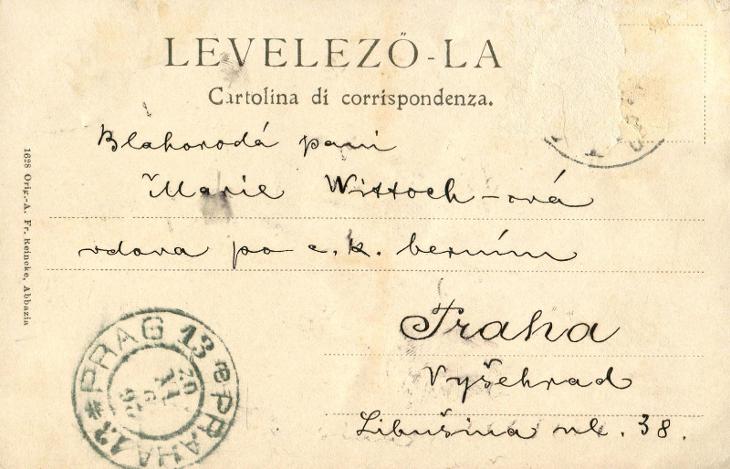 LEVELEZŐ-LA
Cartolina di corrispondenza.
Blahorodá paní
Marie Wittoch-ová
vdova po c. k. berním
Praha
Vyšehrad
Libušina ul. 38.
1628 Orig.-A. Fr. Reincke, Abbazia
PRAG 13
PRAHA 13